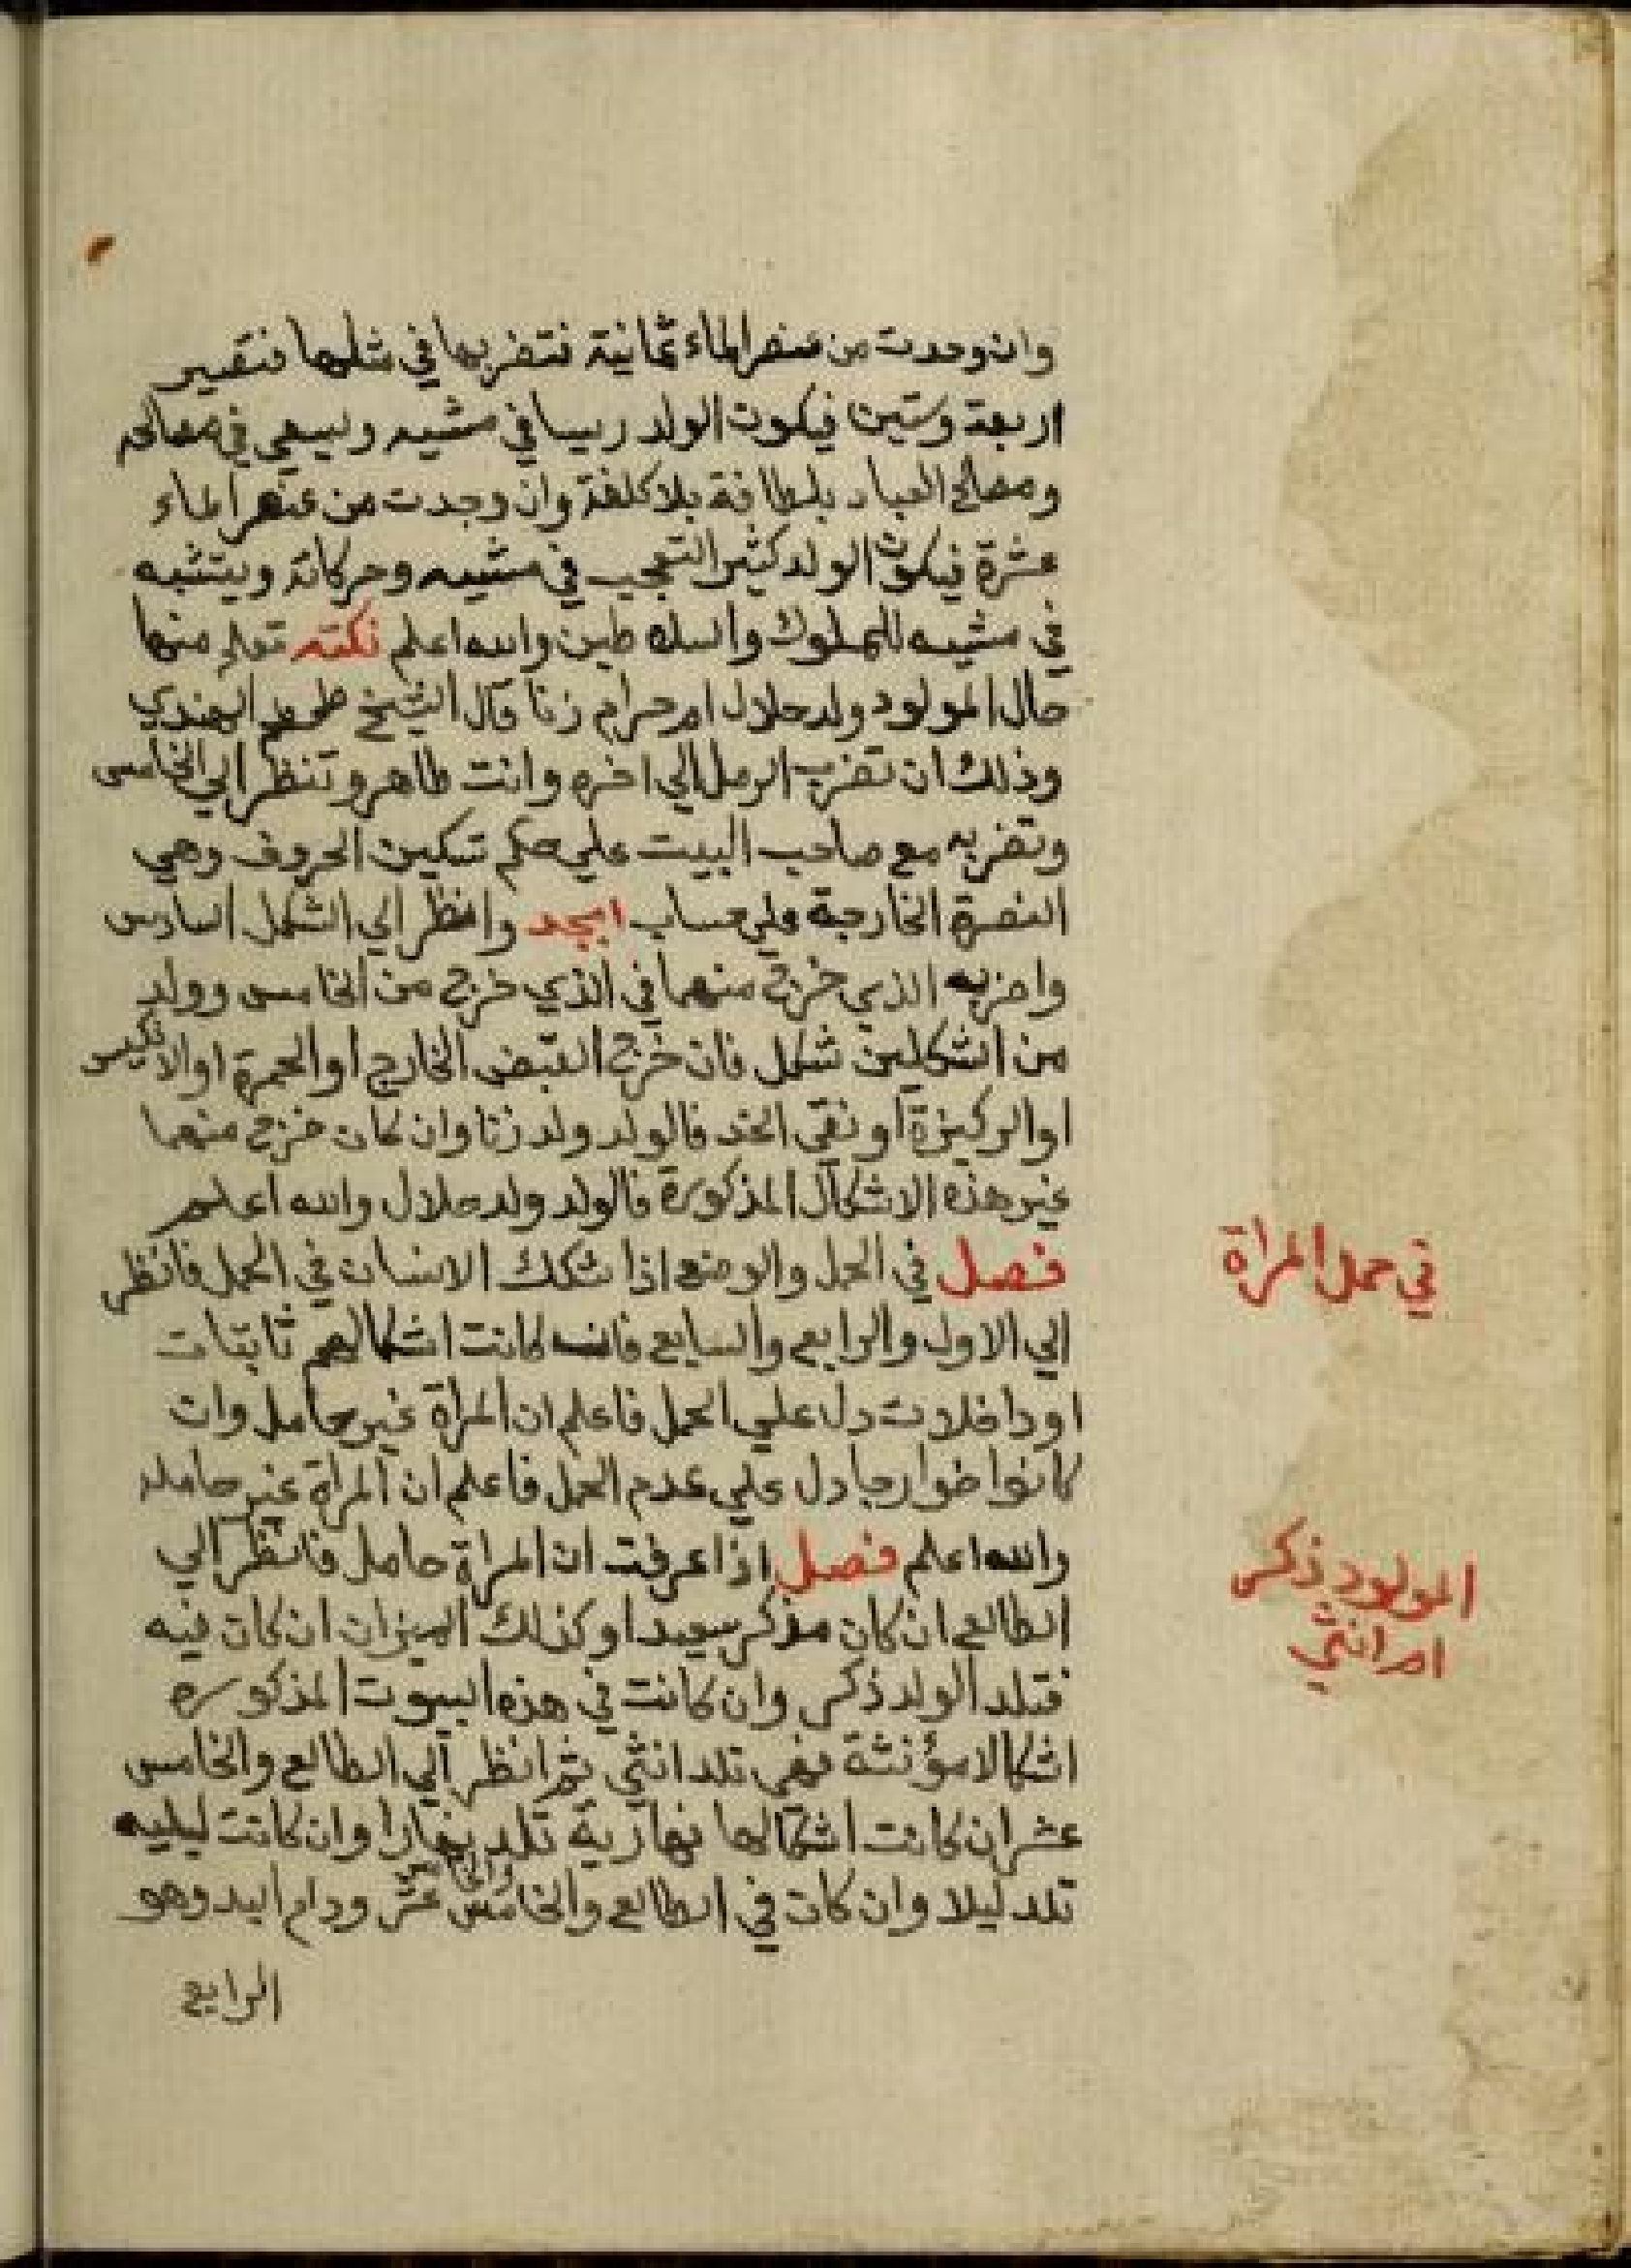 وان وجدت من عنصر الماء ثمانية فتضربها في مثلها فتصير
اربعة وستين فيكون الولد ريسا في مشيه ويسعي في مصالحه
ومصالح العباد بلطافة بلا كلفة وان وجدت من عنصر الماء
عشرة فيكون الولد كثير التعجيب في مشيه وحركاته ويتشبه
في مشيه للملوك والسلاطين والله اعلم نكته تعلم منها
حال المولود ولد حلال ام حرام زنا قال الشيخ طمطم الهندي
وذلك ان تضرب الرمل الي اخره وانت طاهر وتنظر الي الخامس
وتضربه مع صاحب البيت علي حكم تسكين الحروف وهي
النصرة الخارجة علي حساب ابجد وانظر الي الشكل السادس
واضربه الذي خرج منهما في الذي خرج من الخامس وولد
من الشكلين شكل فان خرج القبض الخارج او الحمرة او الانكيس
او الركيزة او نقي الخد فالولد ولد زنا وان كان خرج منهما
غير هذه الاشكال المذكورة فالولد ولد حلال والله اعلم
فصل في الحمل والوضع اذا شكك الانسان في الحمل فانظر
الي الاول والرابع والسابع فانه كانت اشكالهم ثابتات
او داخلات دل علي الحمل فاعلم ان المراة غير حامل وان
كانوا خوارجا دل علي عدم الحمل فاعلم ان المراة غير حامله
والله اعلم فصل اذا عرفت ان المراة حامل فانظر الي
الطالع ان كان مذكر سعيد او كذلك الميزان ان كان فيه
فتلد الولد ذكر وان كانت في هذه البيوت المذكوره
اشكالا مؤنثة فهي تلد انثي ثم انظر الي الطالع والخامس
عشر ان كانت اشكالها نهارية تلد نهارا وان كانت ليليه
تلد ليلا وان كان في الطالع والخامس عشر ودام اليد وهو
الرابع
في حمل المراة
المولود ذكر
ام انثي